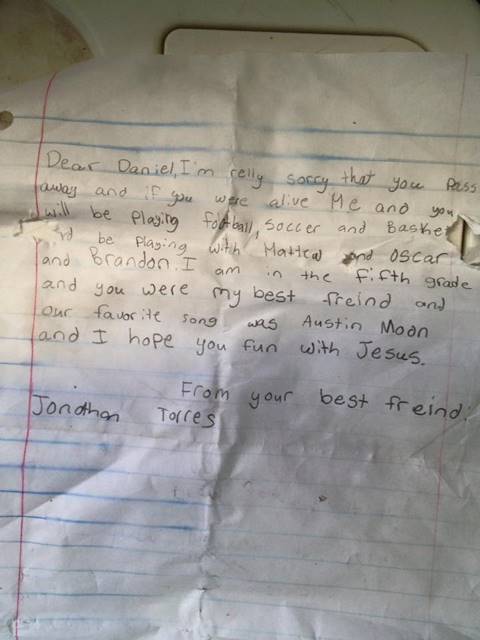 Dear Daniel, I'm relly sorry that you Pass
away and if you were alive Me and you
will be Playing football, Soccer and Baske
be Plasing with Mattew and Oscar
and Brandon. I am in the fifth grade
and you were my best freind and
our favorite song was Austin Moon
and I hope you fun with Jesus.
From your best freind.
Jonathan Torres